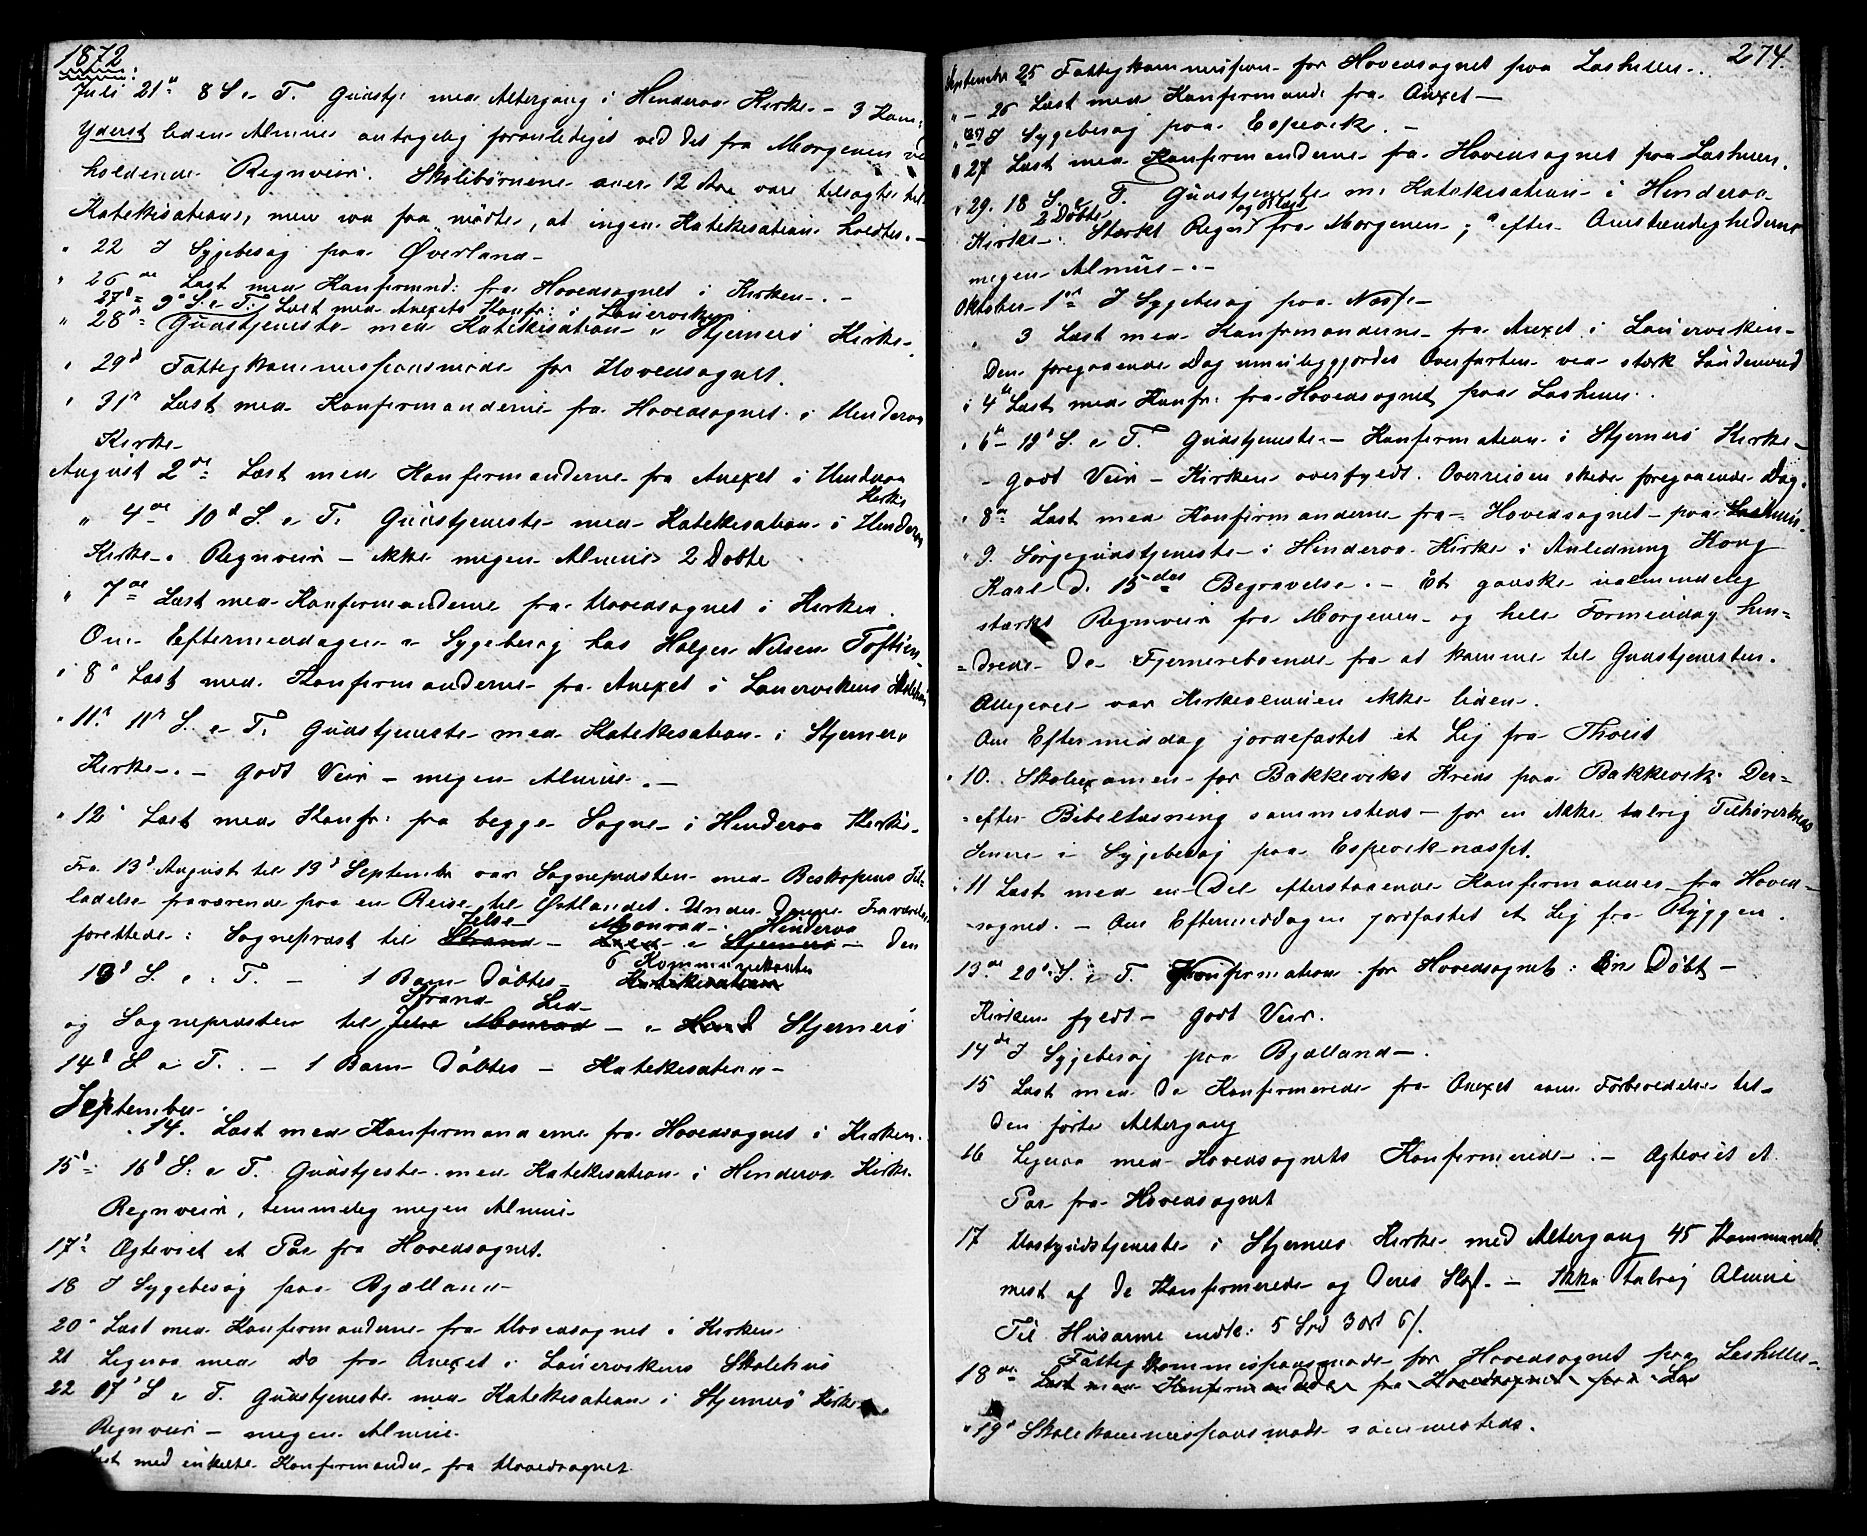 1872
Juli 21de 8 S. e. T. Gudstj. med Altergang i Hinderaa Kirke – 3 Kom:
Yderst liden Almue antagelig foranlediget ved det fra Morgenen ved
holdende Regnveir. Skolebørnene over 12 Aar vare tilsagte til
Katekisation, men saa faa mødte, at ingen Katekisation holdtes. –
" 22 I Sygebesøg paa Øverland –
" 26de Læst med Konfirmand: fra Hovedsognet i Kirken. –
27de 9de S. e. T. Læst med Anexets Konfr: i Lauerviken
" 28de Gudstjeneste med Katekisation i Stjernerö Kirke.
" 29d Fattigkommissionsmøde for Hovedsognet.
" 31te Læst med Konfirmanderne fra Hovedsognet i Hinderaa
Kirke –
August 2de Læst med Konfirmanderne fra Anexet i Hinderaa
Kirke
" 4de 10d S. e. T. Gudstjeneste med Katekisation i Hinderaa
Kirke. Regnveir – ikke megen Almue 2 Døbte
" 7de Læst med Konfirmanderne fra Hovedsognet i Kirken.
Om Eftermiddagen i Sygebesøg hos Holger Nilsen Toftøen
" 8d Læst med Konfirmanderne fra Anexet i Lauervikens Skolehus
" 11te 11te S. e. T. Gudstjeneste med Katekisation i Stjernerö
Kirke. – godt Veir – megen Almue. –
" 12 Læst med Konfr: fra begge Sogne i Hinderaa Kirke.
Fra 13d August til 13d September var Sognepræsten med Biskopens Til-
ladelse fraværende paa en Reise til Østlandet. Under denne Fraværelse
Jelse Monrad. Hinderaa
forrettede: Sognepræst til Strand – i Stjernerö – den
6 Kommunikanter
13d S. e. T. – 1 Barn Døbtes – Katekisation
Strand Lea
og Sognepræsten til Jelse Monrad – i Hind Stjernerö
14d S. e. T. – 1 Barn Døbtes – Katekisation –
September
" 14. Læst med Konfirmanderne fra Hovedsognet i Kirken.
15d 16d S. e. T. Gudstjeste med Katekisation i Hinderaa Kirke.
Regnveir, temmelig megen Almue
17d Ægteviet et Par fra Hovedsognet.
18 I Sygebesøg paa Bjælland –
20d Læst med Konfirmanderne fra Hovedsognet i Kirken
21 Ligesaa med do fra Anexet i Lauervikens Skolehus
22 17d S. e. T. Gudstjeneste med Katekisation i Stjernerö Kirke
Regnveir – megen Almue.
Læst med enkelte Konfirmander fra Hovedsognet
274.
September 25 Fattigkommission for Hovedsognet paa Laskuen.
" – 26 Læst med Konfirmande fra Anxet –
" I Sygebesøg paa Espevik. –
" 27 Læst med Konfirmanderne fra Hovedsognet paa Laskuen.
" 29. 18 S. e. T. Gudstjeneste m: Katekisation i Hinderaa
2 Døbte og Blæst
Kirke. Stærkt Regn fra Morgenen; efter Omstændighederne
megen Almue. –
Oktober 1ste I Sygebesøg paa Næss –
" 3 Læst med Konfirmanderne fra Anxet i Lauerviken –
Den foregaaende Dag umuliggjordes Overfarten ved stærk Søndenvind
" 4de Læst med Konfr: fra Hovedsognet paa Laskuen.
" 6te 19d S. e. T. Gudstjeneste – Konfirmation i Stjernerö Kirke –
– godt Veir – Kirken overfyldt. Overreisen skede foregaaende Dag.
" 8de Læst med Konfirmanderne fra Hovedsognet – paa Laskuen.
" 9. Sørgegudstjeneste i Hinderaa Kirke i Anledning Kong
Karl d. 15des Begravelse. – Et ganske ualmindelig
stærkt Regnveir fra Morgenen og hele Formiddag hin=
=drede de Fjernereboende fra at komme til Gudstjenesten.
Alligevel var Kirkealmuen ikke liden.
Om Eftermiddag jordfæstet et Lig fra Thveit
" 10. Skoleexamen for Bakkeviks Kreds paa Bakkevik. Der=
=efter Bibellæsning sammesteds – for en ikke talrig Tilhørerkreds
Senere i Sygebesøg paa Espevik-næsset.
" 11 Læst med en Del efterstaaende Konfirmander fra Hoved=
=sognet. – Om Eftermiddagen jordfæstet et Lig fra Ryggen.
13de 20d S. e. T. Konfirmation for Hovedsognet: En Døbt –
Kirken fyldt – godt Veir.
14de I Sygebesøg paa Bjælland –.
15 Læst med de Konfirmerede fra Anexet som Forberedelse til
den første Altergang
16 Ligesaa med Hovedsognets Konfirmerede. – Ægteviet et
Par fra Hovedsognet
17 Høstgudstjeneste i Stjernerö Kirke med Altergang 45 Kommunik.
mest af de Konfirmerede og deres Slægt. – Ikke talrig Almue
Til Husarme indk: 5 Spd 3 ort 6 ß.
Fattigkommissionsmøde for Hovedsognet paa Laskuen.
18de Læst med Konfirmanderne fra Hovedsognet paa Las
" 19d Skolekommissionsmøde sammesteds.